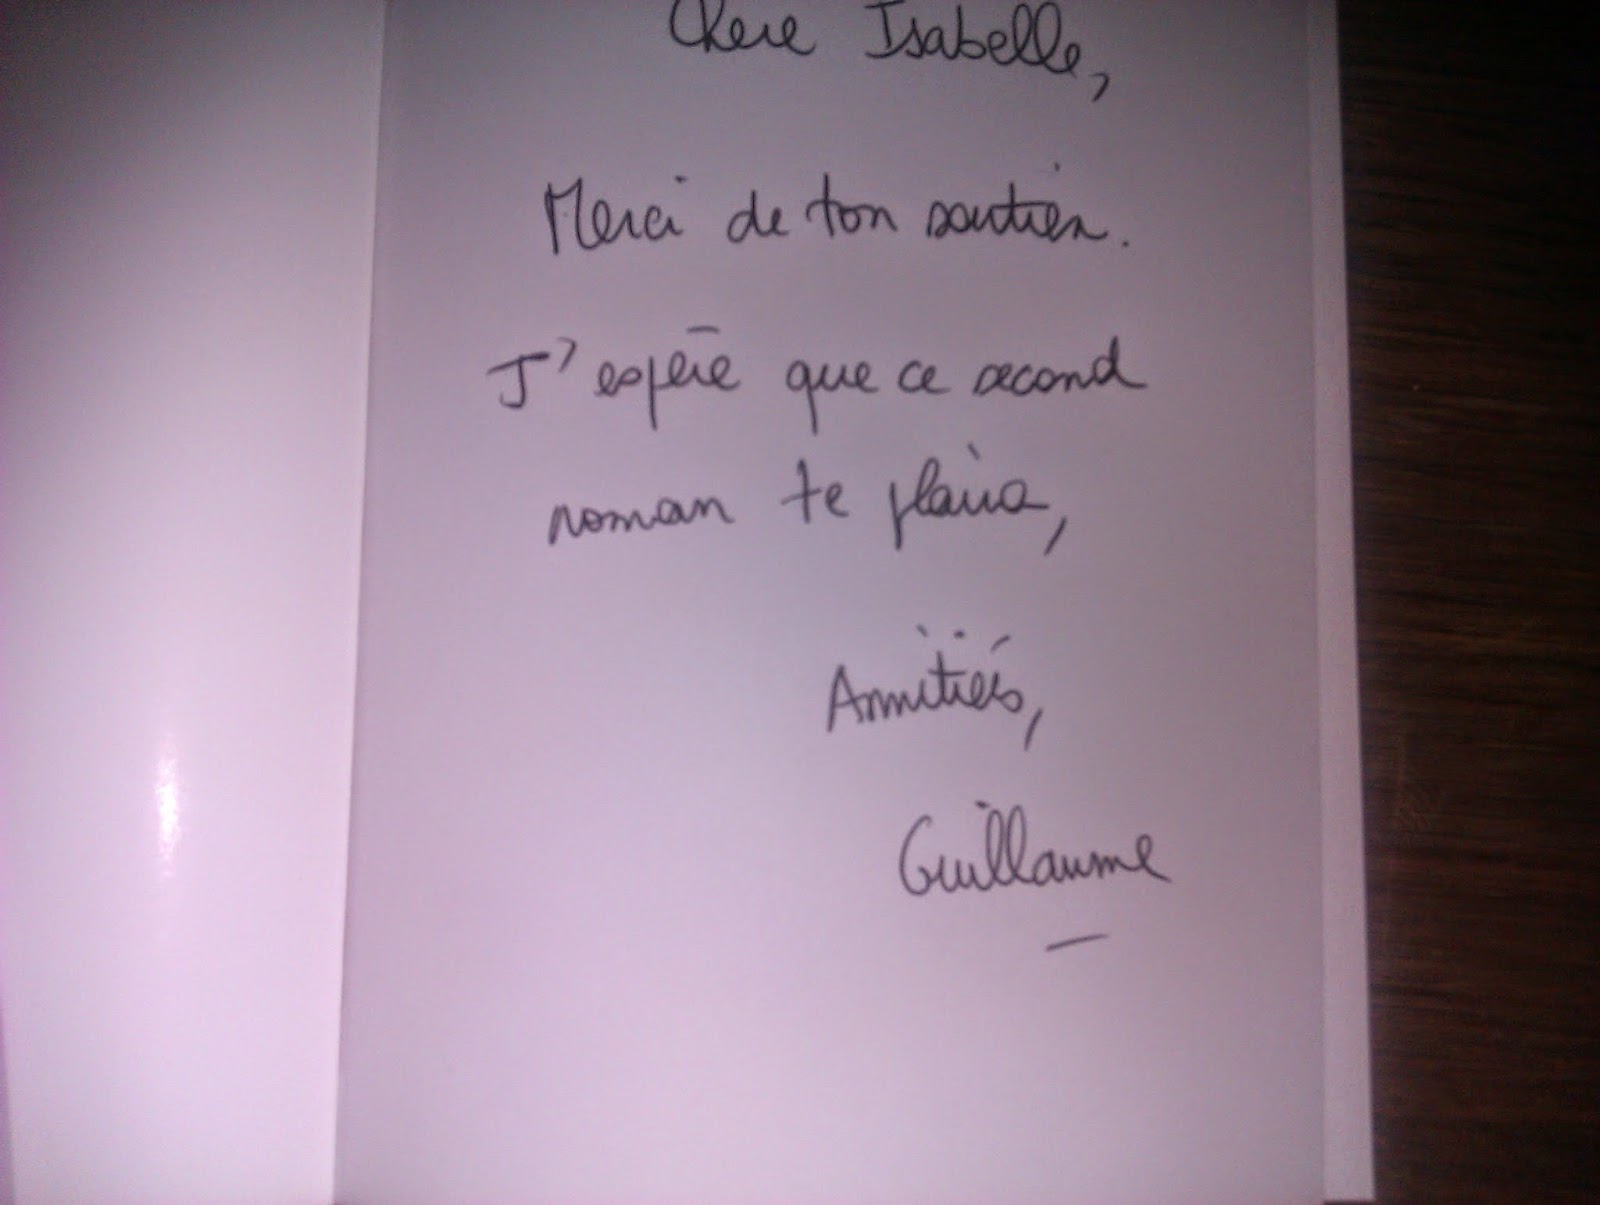 Chere Isabelle,
Merci de ton soutien.
J'espère que ce second
roman te plaira,
Amitiés,
Guillaume